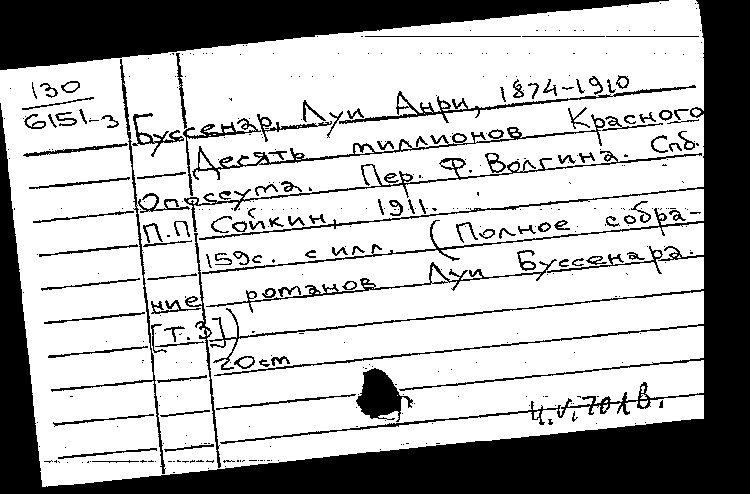 130
6151-3
Буссенар, Луи Анри, 1874-1910
Десять миллионов Красного
Опоссума. Пер. Ф. Волгина. Спб.
П.П Сойкин, 1911.
159с. с илл. (Полное собра-
ние романов Луи Буссенара.
[т. 3])
20см